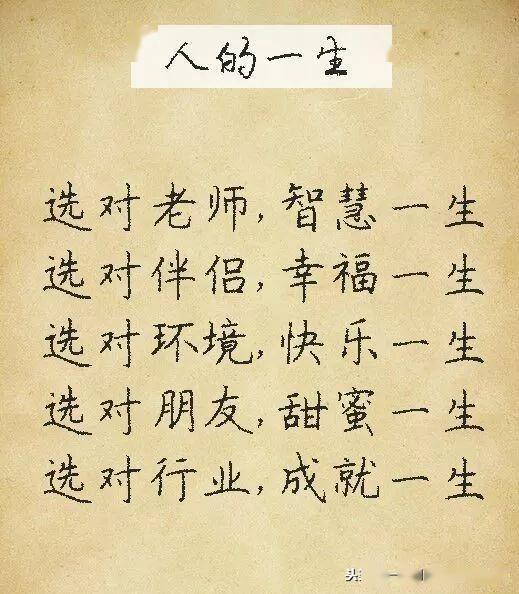 人的一生
选对老师,智慧一生
选对伴侣,幸福一生
选对环境,快乐一生
选对朋友,甜蜜一生
选对行业,成就一生